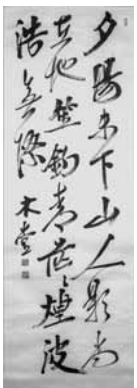 夕陽未下山人影尚
在地釣青茫々煙波
浩無際 木堂